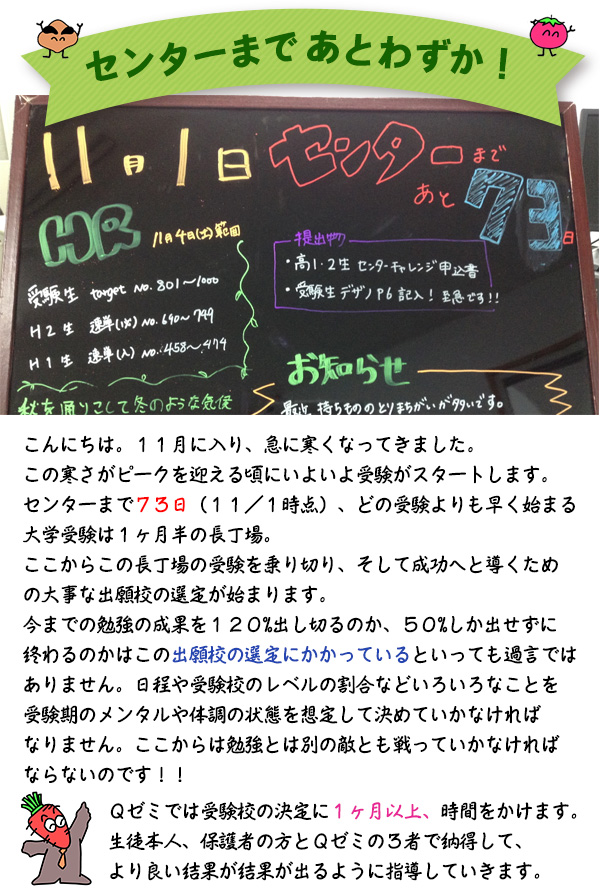 センターまで あとわずか！
11月1日
センターまで
あと73日
HR 11月4日(土)範囲
受験生 target No.801〜1000
H2生 速単(必) No.690〜749
H1生 速単(入) No.458〜474
秋を通りこして冬のような気候
提出物
・高1・2生 センターチャレンジ申込書
・受験生 デザノP6記入！至急です!!
お知らせ
最近 持ちもののとりまちがいが多いです。
こんにちは。１１月に入り、急に寒くなってきました。
この寒さがピークを迎える頃にいよいよ受験がスタートします。
センターまで７３日（１１／１時点）、どの受験よりも早く始まる
大学受験は１ヶ月半の長丁場。
ここからこの長丁場の受験を乗り切り、そして成功へと導くため
の大事な出願校の選定が始まります。
今までの勉強の成果を１２０%出し切るのか、５０%しか出せずに
終わるのかはこの出願校の選定にかかっているといっても過言では
ありません。日程や受験校のレベルの割合などいろいろなことを
受験期のメンタルや体調の状態を想定して決めていかなければ
なりません。ここからは勉強とは別の敵とも戦っていかなければ
ならないのです！！
Ｑゼミでは受験校の決定に１ヶ月以上、時間をかけます。
生徒本人、保護者の方とＱゼミの３者で納得して、
より良い結果が結果が出るように指導していきます。